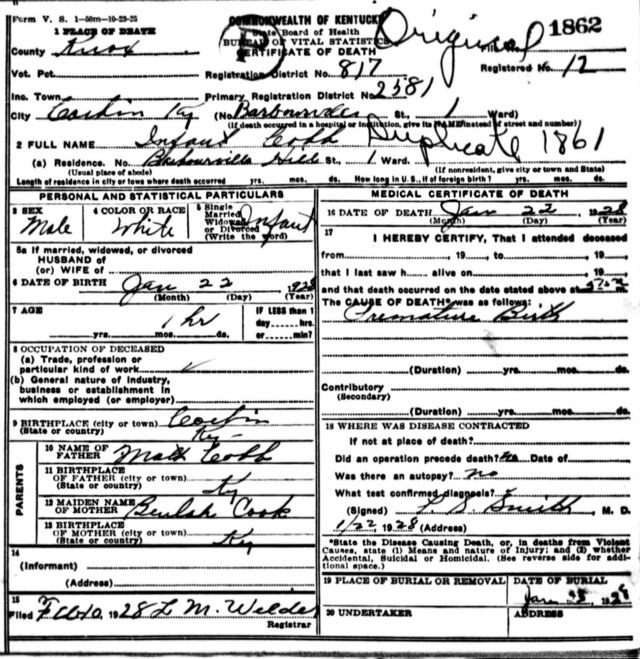 Form V. S. 1-50m-10-23-25
COMMONWEALTH OF KENTUCKY
Original
1862
1 PLACE OF DEATH
State Board of Health
County Knox
BUREAU OF VITAL STATISTICS
CERTIFICATE OF DEATH
Vot. Pct.
Registration District No. 817
Registered No. 12
Inc. Town
Primary Registration District No. 2381
City Corbin Ky (No. St., 1 Ward)
(If death occurred in a hospital or institution, give its NAME instead of street and number)
2 FULL NAME Infant Cobb Duplicate 1861
(a) Residence. No. Barbourville Hill St., 1 Ward.
(Usual place of abode) (If nonresident, give city or town and State)
Length of residence in city or town where death occurred yrs. mos. ds. How long in U. S., if of foreign birth? yrs. mos. ds.
PERSONAL AND STATISTICAL PARTICULARS
3 SEX Male
4 COLOR OR RACE White
5 Single Married Widowed or Divorced (Write the word) Infant
5a If married, widowed, or divorced
HUSBAND of
(or) WIFE of
6 DATE OF BIRTH Jan 22 1928
(Month) (Day) (Year)
7 AGE 1 hr
yrs. mos. ds.
IF LESS than 1
day hrs.
or min?
8 OCCUPATION OF DECEASED
(a) Trade, profession or
particular kind of work
(b) General nature of industry,
business or establishment in
which employed (or employer)
9 BIRTHPLACE (city or town) Corbin
(State or country) Ky
PARENTS
10 NAME OF
FATHER Cobb
11 BIRTHPLACE
OF FATHER (city or town)
(State or country) Ky
12 MAIDEN NAME
OF MOTHER Beulah Cook
13 BIRTHPLACE
OF MOTHER (city or town)
(State or country) Ky
14
(Informant)
(Address)
15
Filed Feb 10, 1928 L M Welder
Registrar
MEDICAL CERTIFICATE OF DEATH
16 DATE OF DEATH Jan 22 1928
(Month) (Day) (Year)
17
I HEREBY CERTIFY, That I attended deceased
from , 19 , to , 19
that I last saw h alive on , 19
and that death occurred on the date stated above at m
The CAUSE OF DEATH* was as follows:
Premature Birth
(Duration) yrs. mos. ds.
Contributory
(Secondary)
(Duration) yrs. mos. ds.
18 WHERE WAS DISEASE CONTRACTED
If not at place of death?
Did an operation precede death? no Date of
Was there an autopsy? no
What test confirmed diagnosis?
(Signed) L S. Smith, M. D.
1/22, 1928 (Address)
*State the Disease Causing Death, or, in deaths from Violent
Causes, state (1) Means and nature of Injury; and (2) whether
Accidental, Suicidal or Homicidal. (See reverse side for addi-
tional space.)
19 PLACE OF BURIAL OR REMOVAL
DATE OF BURIAL
Jan 1928
20 UNDERTAKER
ADDRESS